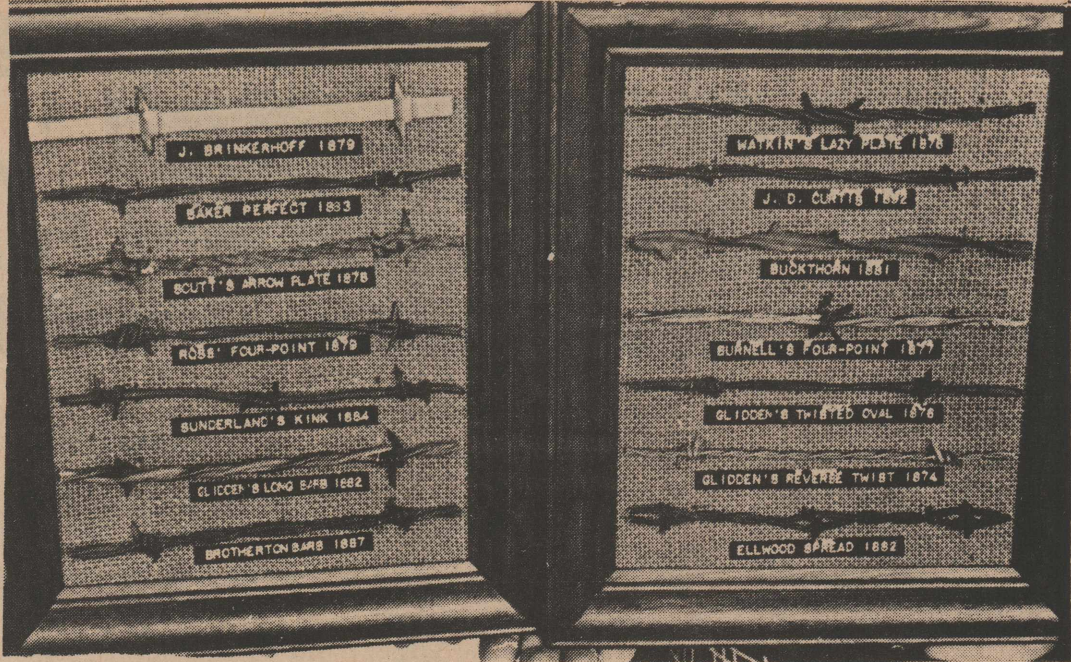 J. BRINKERHOFF 1879
BAKER PERFECT 1883
SCUTT'S ARROW PLATE 1878
ROSS' FOUR-POINT 1879
SUNDERLAND'S KINK 1884
GLIDDEN'S LONG BARB 1882
BROTHERTON BARB 1887
WATKIN'S LAZY PLATE 1876
J. D. CURTIS 1892
BUCKTHORN 1881
BURNELL'S FOUR-POINT 1877
GLIDDEN'S TWISTED OVAL 1876
GLIDDEN'S REVERSE TWIST 1874
ELLWOOD SPREAD 1882